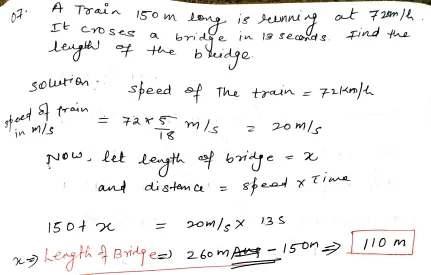 07. A Train 150 m long is running at 72km/h.
It croses a bridge in 13 seconds. Find the
length of the bridge.
solution. speed of The train = 72km/h
speed of train
in m/s = 72 x 5/18 m/s = 20 m/s
Now, let length of bridge = x
and distance = speed x Time
150 + x = 20m/s x 13 s
x => Length of Bridge => 260 m - 150m => 110 m